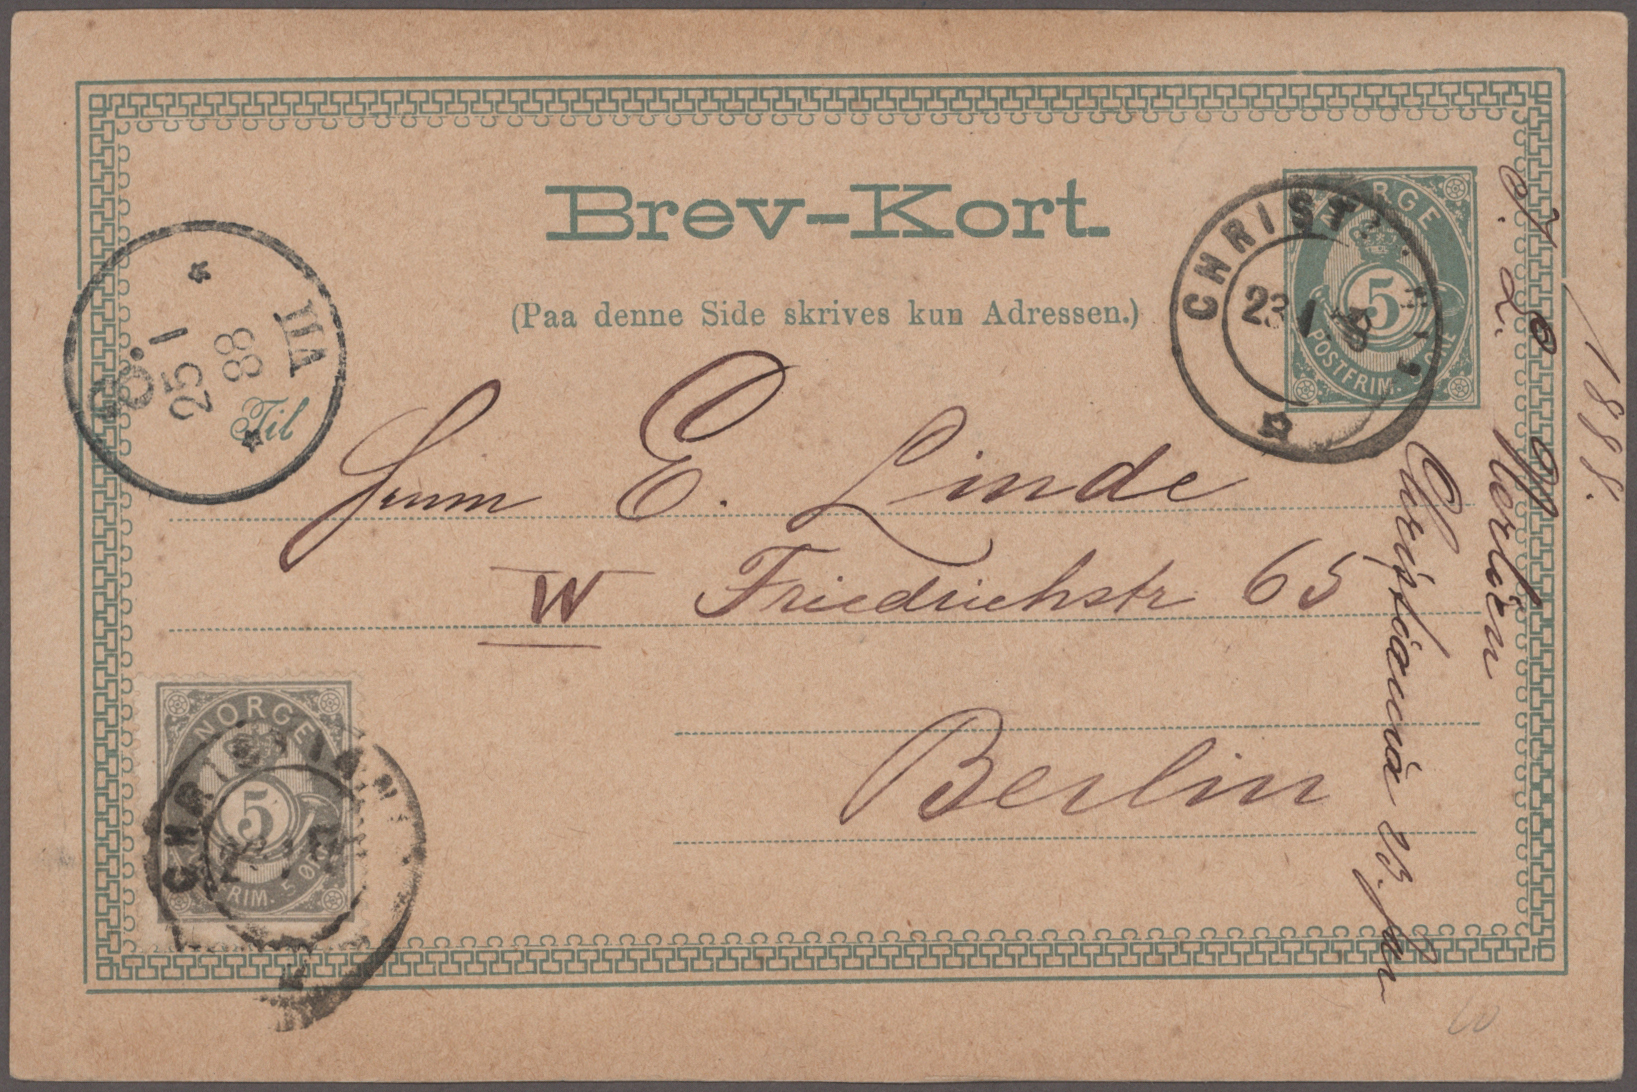 Brev-Kort.
(Paa denne Side skrives kun Adressen.)
Til
Herrn E. Linde
W Friedrichstr 65
Berlin
NORGE
5
POSTFRIM. 5 ØRE
CHRISTIANIA
23 1
25 1
88
NORGE
5
FRIM. 5 ØRE
CHRISTIAN
Christiania 23. Jan
1888.